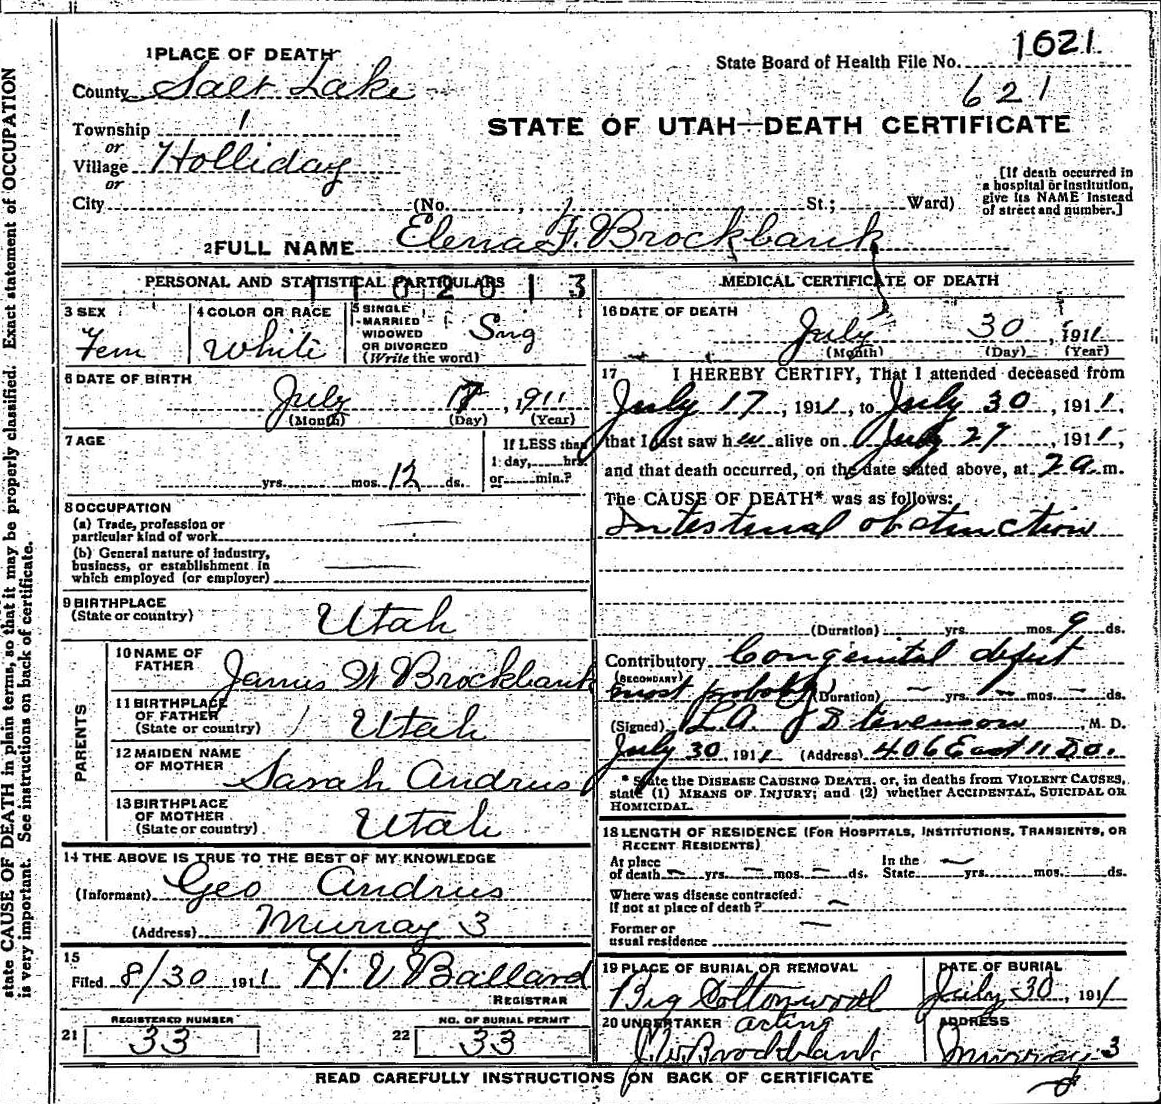 1 PLACE OF DEATH
State Board of Health File No. 1621
County Salt Lake
621
STATE OF UTAH—DEATH CERTIFICATE
Township
or
Village Holliday
or
[If death occurred in
a hospital or institution,
give its NAME instead
of street and number.]
City (No. , St.; Ward)
2 FULL NAME Elena F. Brockbank
PERSONAL AND STATISTICAL PARTICULARS
1102013
3 SEX
Fem
4 COLOR OR RACE
White
5 SINGLE
MARRIED
WIDOWED
OR DIVORCED
(Write the word)
Sng
6 DATE OF BIRTH
July 17, 1911
(Month) (Day) (Year)
7 AGE
yrs. mos. 12 ds.
If LESS than
1 day, hrs.
or min.?
8 OCCUPATION
(a) Trade, profession or
particular kind of work
(b) General nature of industry,
business, or establishment in
which employed (or employer)
9 BIRTHPLACE
(State or country) Utah
PARENTS
10 NAME OF
FATHER James W Brockbank
11 BIRTHPLACE
OF FATHER
(State or country) Utah
12 MAIDEN NAME
OF MOTHER Sarah Andrus
13 BIRTHPLACE
OF MOTHER
(State or country) Utah
14 THE ABOVE IS TRUE TO THE BEST OF MY KNOWLEDGE
(Informant) Geo Andrus
(Address) Murray 3
15
Filed 8/30 1911 H. V Ballard
REGISTRAR
21 REGISTERED NUMBER
33
22 NO. OF BURIAL PERMIT
33
MEDICAL CERTIFICATE OF DEATH
16 DATE OF DEATH
July 30, 1911
(Month) (Day) (Year)
17 I HEREBY CERTIFY, That I attended deceased from
July 17, 1911, to July 30, 1911,
that I last saw her alive on July 29, 1911,
and that death occurred, on the date stated above, at 2 a. m.
The CAUSE OF DEATH* was as follows:
Intestinal obstruction
(Duration) yrs. mos. 9 ds.
Contributory Congenital defect
(SECONDARY)
most probably (Duration) — yrs. — mos. — ds.
(Signed) L. A. Stevenson M. D.
July 30, 1911 (Address) 406 East 11 So.
* State the DISEASE CAUSING DEATH, or, in deaths from VIOLENT CAUSES,
state (1) MEANS OF INJURY; and (2) whether ACCIDENTAL, SUICIDAL OR
HOMICIDAL.
18 LENGTH OF RESIDENCE (FOR HOSPITALS, INSTITUTIONS, TRANSIENTS, OR
RECENT RESIDENTS)
At place
of death — yrs. — mos. — ds.
In the
State — yrs. mos. ds.
Where was disease contracted,
if not at place of death? —
Former or
usual residence —
19 PLACE OF BURIAL OR REMOVAL
Big Cottonwood
DATE OF BURIAL
July 30, 1911
20 UNDERTAKER acting
J. W. Brockbank
ADDRESS
Murray 3
READ CAREFULLY INSTRUCTIONS ON BACK OF CERTIFICATE
state CAUSE OF DEATH in plain terms, so that it may be properly classified. Exact statement of OCCUPATION
is very important. See instructions on back of certificate.